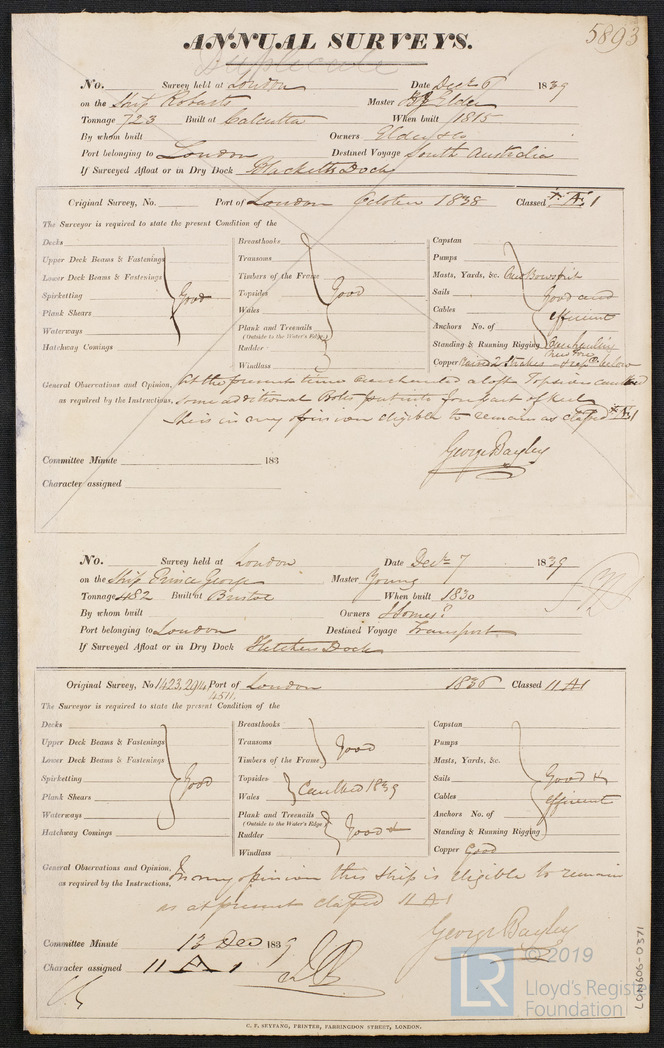 5893
ANNUAL SURVEYS.
Duplicate
No. Survey held at London Date Decr 6 1839
on the Ship Robarts Master Elder
Tonnage 723 Built at Calcutta When built 1815
By whom built Owners Elder & Co
Port belonging to London Destined Voyage South Australia
If Surveyed Afloat or in Dry Dock Blacketts Dock
Original Survey, No. Port of London October 1838 Classed A 1
The Surveyor is required to state the present Condition of the
Decks
Upper Deck Beams & Fastenings
Lower Deck Beams & Fastenings
Spirketting Good
Plank Shears
Waterways
Hatchway Comings
Breasthooks
Transoms
Timbers of the Frame
Topsides Good
Wales
Plank and Treenails
(Outside to the Water's Edge)
Rudder
Windlass
Capstan
Pumps
Masts, Yards, &c. Bowsprit
Sails Good and
Cables efficient
Anchors No. of
Standing & Running Rigging
Copper Raised 2 Strakes below
General Observations and Opinion, At the present time overhauled aloft Topsides caulked
as required by the Instructions, some additional Bolts put into fore part of keel
She is in my opinion eligible to remain as classed A 1
George Bayley
Committee Minute 183
Character assigned
No. Survey held at London Date Decr 7 1839
on the Ship Prince George Master Young
Tonnage 482 Built at Bristol When built 1830
By whom built Owners
Port belonging to London Destined Voyage Transport
If Surveyed Afloat or in Dry Dock Fletchers Dock
Original Survey, No 1423, 294, Port of London 1836 Classed 11 A 1
4511
The Surveyor is required to state the present Condition of the
Decks
Upper Deck Beams & Fastenings
Lower Deck Beams & Fastenings
Spirketting Good
Plank Shears
Waterways
Hatchway Comings
Breasthooks
Transoms Good
Timbers of the Frame
Topsides
Wales Caulked 1839
Plank and Treenails
(Outside to the Water's Edge)
Rudder Good
Windlass
Capstan
Pumps
Masts, Yards, &c.
Sails Good &
Cables efficient
Anchors No. of
Standing & Running Rigging
Copper Good
General Observations and Opinion, In my opinion this Ship is eligible to remain
as required by the Instructions, as at present classed 11 A 1
George Bayley
Committee Minute 13 Dec 1839
Character assigned 11 A 1
C. F. SEYFANG, PRINTER, FARRINGDON STREET, LONDON.
LR
© 2019
Lloyd's Register
Foundation
LON606-0371